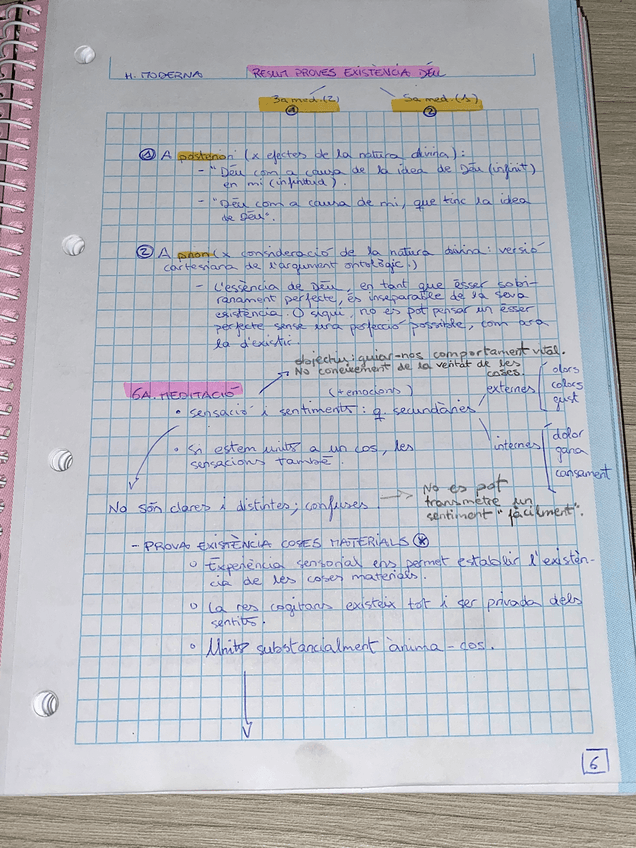 H. MODERNA RESUM PROVES EXISTÈNCIA DÉU
3a med. (2) 5a med. (1)
1 2
① A posteriori (x efectes de la natura divina):
- "Déu com a causa de la idea de Déu (infinit)
en mi (infinitud).
- "Déu com a causa de mi, que tinc la idea
de Déu".
② A priori (x consideració de la natura divina: versió
cartesiana de l'argument ontològic.)
- L'essència de Déu, en tant que ésser sobi-
ranament perfecte, és inseparable de la seva
existència. O sigui, no es pot pensar un ésser
perfecte sense una perfecció possible, com ara
la d'existir.
objectiu: guiar-nos comportament vital.
No coneixement de la veritat de les
coses.
6A. MEDITACIÓ
(+ emocions)
• sensació i sentiments: q. secundàries
externes
olors
colors
gust
• Si estem units a un cos, les
sensacions també.
internes
dolor
gana
cansament
No són clares i distintes; confuses
No es pot
transmetre un
sentiment "fàcilment".
- PROVA EXISTÈNCIA COSES MATERIALS
○ Experiència sensorial ens permet establir l'existèn-
cia de les coses materials.
○ La res cogitans existeix tot i ser privada dels
sentits.
○ Units substancialment ànima - cos.
6